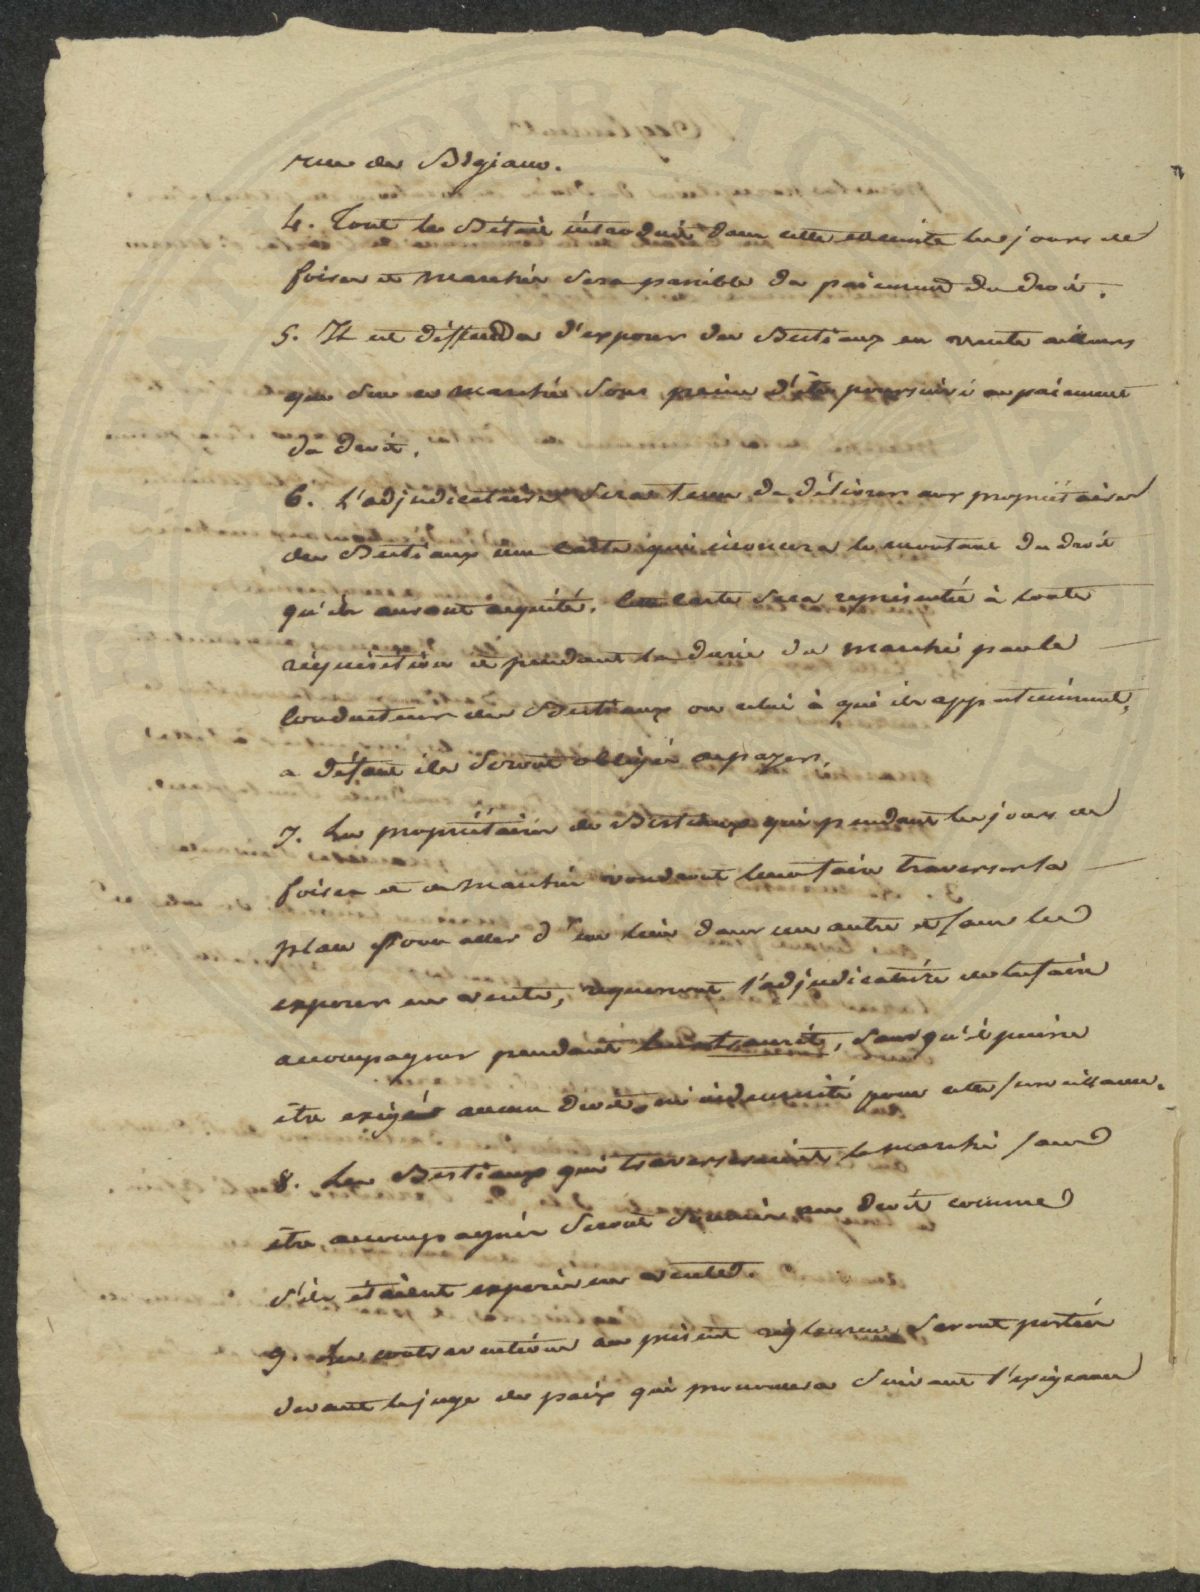 rue des Bégiaux.
4. Tout le Bétail introduit dans cette enceinte les jours de
foires et marchés sera passible du paiement du droit.
5. Il est déffendu d'exposer des Bestiaux en vente ailleurs
que sur ce marché sous peine d'être poursuivi au paiement
du droit.
6. L'adjudicataire sera tenu de délivrer aux propriétaires
des Bestiaux une carte qui énoncera le montant du droit
qu'ils auront acquité. Cette carte sera représentée à toute
réquisition et pendant la durée du marché par le
Conducteur des Bestiaux ou celui à qui ils appartiennent,
a défaut ils seront obligés a payer.
7. Les propriétaires de Bestiaux qui pendant les jours de
foires et de marchés voudront leur faire traverser la
place pour aller d'un lieu dans un autre et sans les
exposer en vente, requerront l'adjudicataire de les faire
accompagner pendant leur , sans qu'il puisse
être exigé aucun droit ni indemnité pour cette surveillance.
8. Les Bestiaux qui traverseraient le marché sans
être accompagnés seront soumis au droit comme
s'ils étaient exposés en vente.
9. Les contraventions au présent règlement seront portées
devant le juge de paix qui prononcera suivant l'exigence